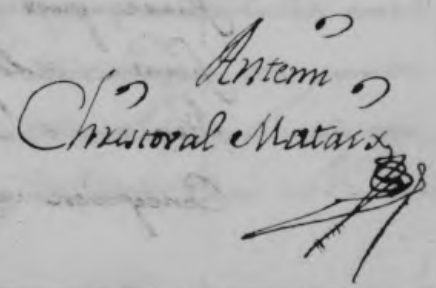 Antemi
Christoval Mataix